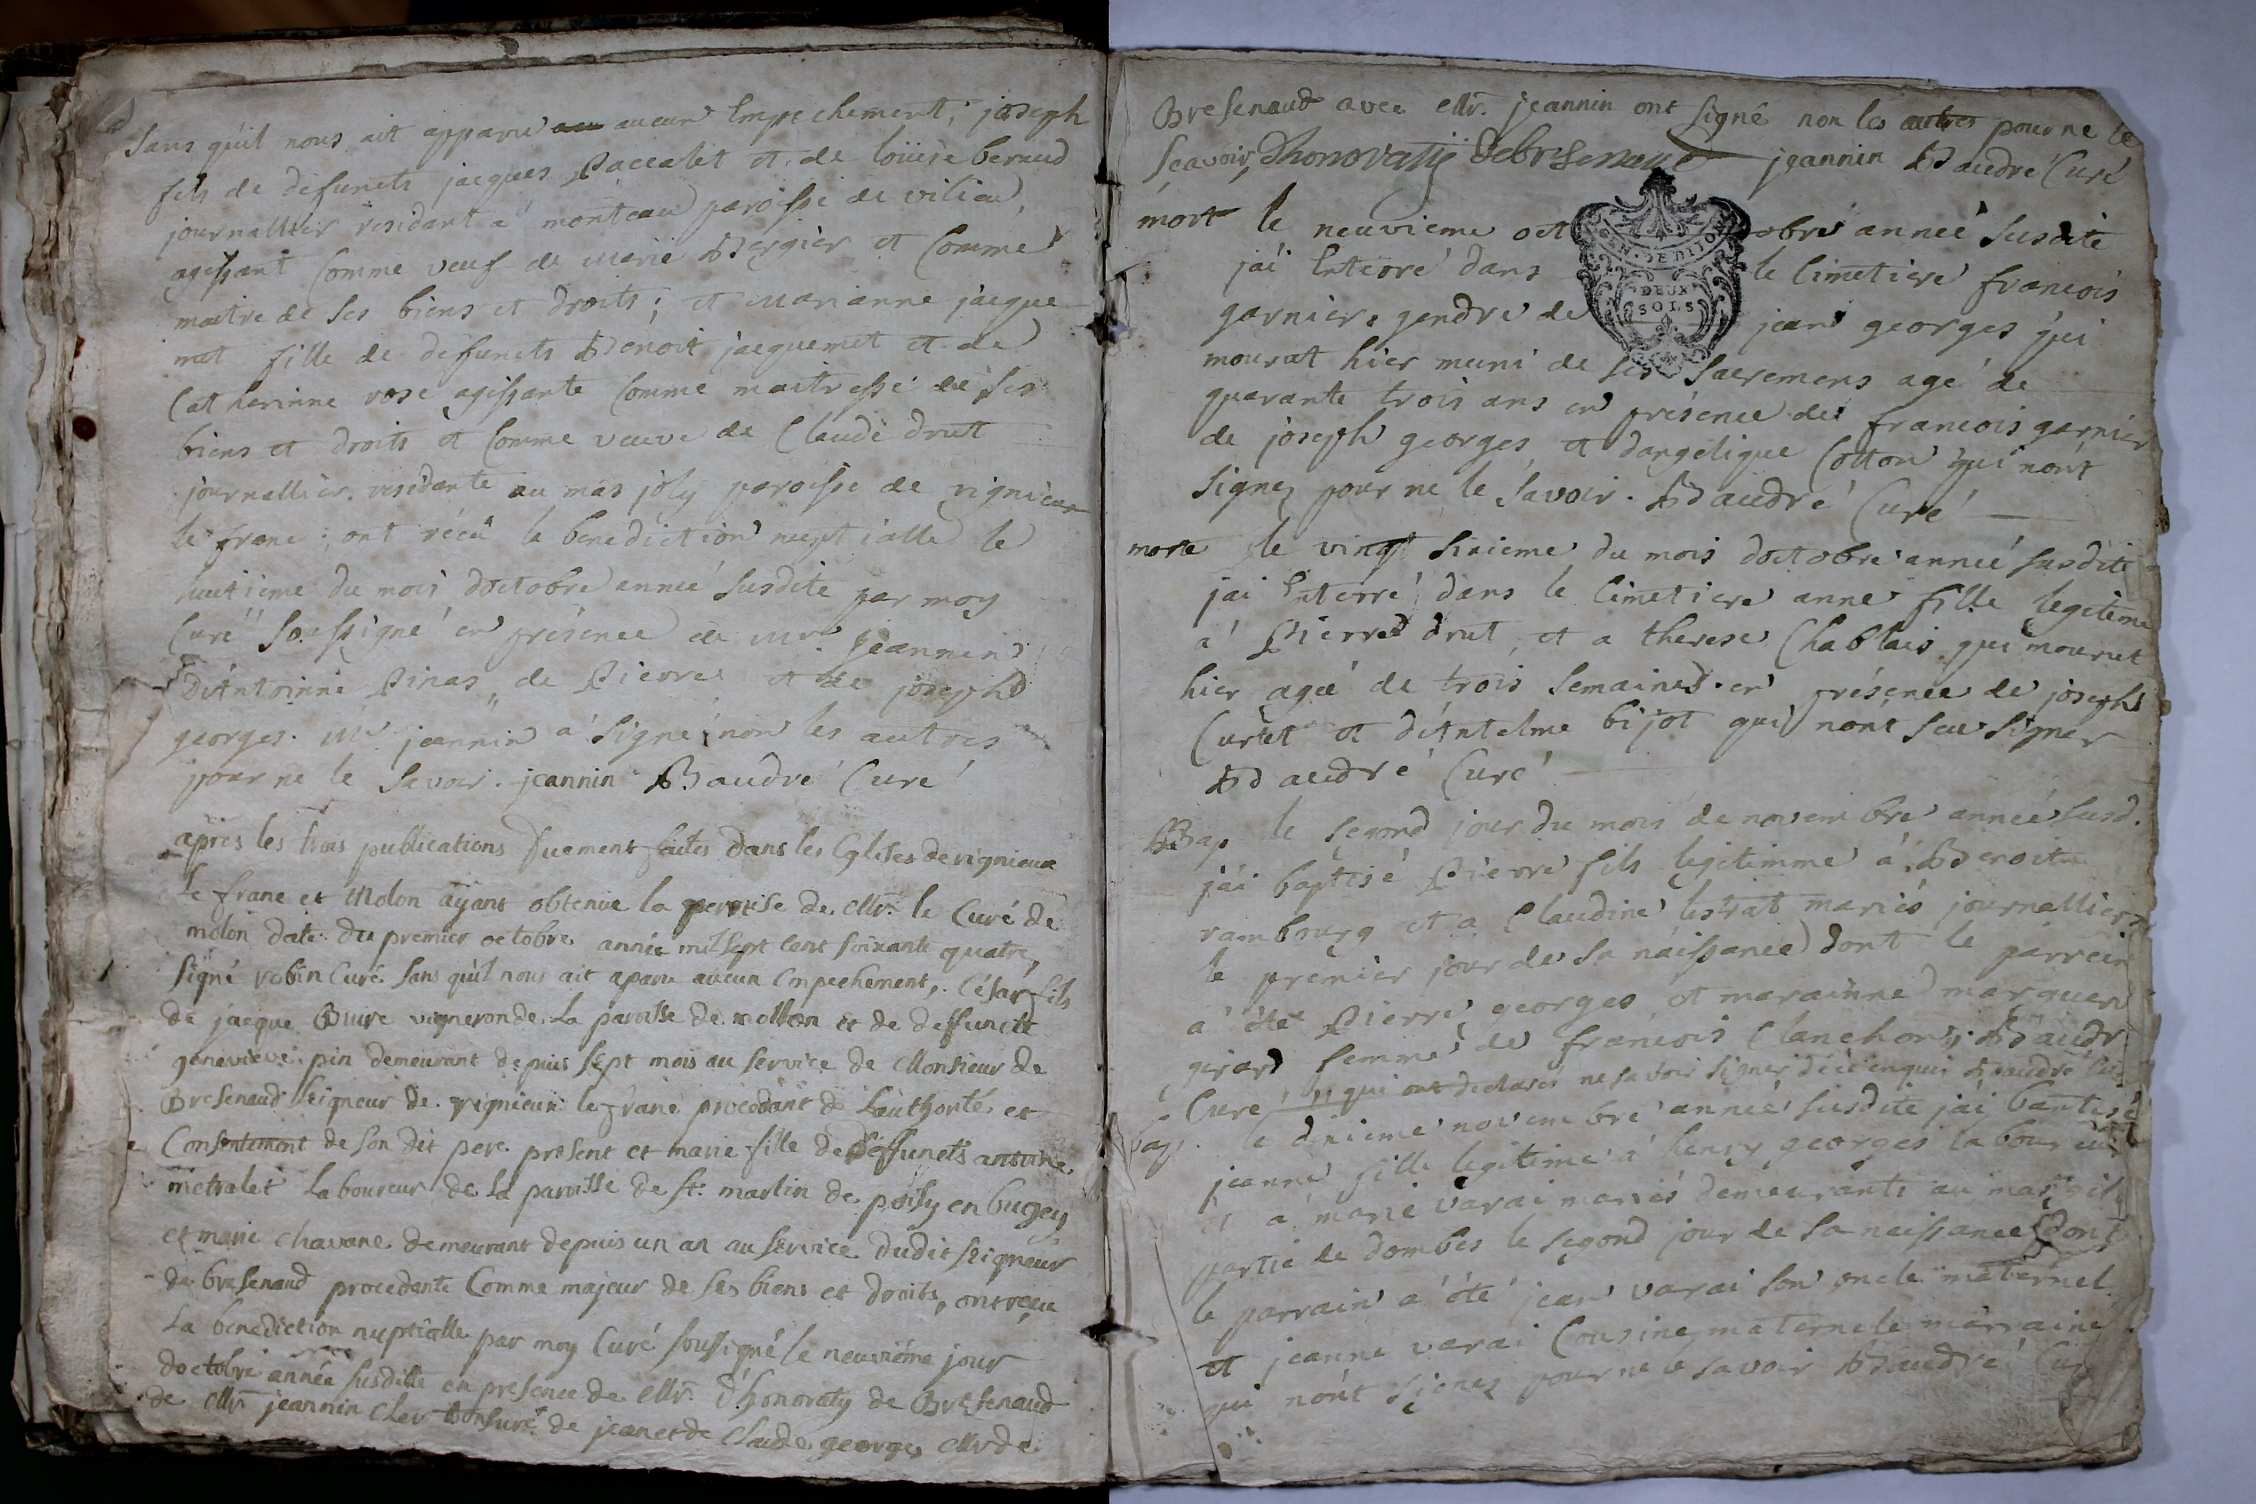 sans qu'il nous ait apparu aucun Empechement; joseph
fils de defuncts jacques Paccalet et de loüise beraud
journallier residant a monteau paroisse de vilieu,
agissant Comme veuf de marie Bergier et Comme
maitre de ses biens et droits; et marianne jacque
met fille de defuncts Benoit jacquemet et de
Catherinne rose agissante Comme maitresse de ses
biens et droits et Comme veuve de Claude drut
journallier residante au mas joly paroisse de rignieux
le franc; ont récu la benediction nuptialle le
huitieme du mois doctobre année susdite par moy
Curé soussigné en présence de mr. jeannin
d'Antoinne Pinas, de Pierre et de joseph
georges. mr jeannin a signé non les autres
pour ne le savoir. jeannin Baudré Curé
apres les trois publications duement faites dans les Eglises de rignieux
le franc et Molon ayant obtenue la permise de Mr. le Curé de
molon date du premier octobre année mil sept cent soixante quatre,
signé robin Curé sans qu'il nous ait aparu aucun Empechement, César fils
de jacque Buire vigneron de la paroisse de mollon et de deffuncte
genevieve pin demeurant depuis sept mois au service de Monsieur de
Bresenaud seigneur de rignieux le franc procedant de L'authorité et
Consentement de son dit pere present et marie fille de deffuncts antoine
metralet Laboureur de la paroisse de st. martin de poisy en bugey
et marie chavane demeurant depuis un an au service dudit seigneur
de bresenaud procedente Comme majeur de ses biens et droits, ont reçue
La benediction nuptialle par moy Curé soussigné le neuviéme jour
doctobre année susditte en presence de Mr. d'honoraty de Bresenaud
de Mr jeannin Clerc tonsuré de jean et de Claude georges Mr de
Bresenaud avec Mr. jeannin ont signé non les autres pour ne le
scavoir, Dhonoraty Debresenaud jeannin Baudré Curé
mort le neuvieme octobre année susdite
GEN. DE DIJON
DEUX SOLS
j'ai Enterré dans le Cimetiere francois
garnier gendre de jean georges qui
mourut hier muni de ses sacremens agé de
quarante trois ans en présence de francois garnier
de joseph georges et dangélique Cotton qui n'ont
signez pour ne le savoir. Baudré Curé
morte le vingt sixieme du mois doctobre année susdite
j'ai Enterré dans le Cimetiere anne fille legitime
a Pierre drut, et a therese Chablais qui mourut
hier ageé de trois semaines en présence de joseph
Curtet et d'Antelme bijot qui n'ont sçu signer
Baudré Curé
Bap. le segond jour du mois de novembre année susd.
j'ai baptisé Pierre fils legitimme a Benoit
rambourg et a Claudine lestrat mariés journalliers
le premier jour de sa naissance dont le parrein
a été Pierre georges et marainne marguerite
girard femme de francois Clanchon, Baudré
Curé, qui ont declarés ne savoir signer de ce enquis Baudré Curé
bap. le dixieme novembre année susdite j'ai baptisé
jeanne fille legitime a henry georges laboureur
et a marie varai mariés demeurants au mas
partie de dombes le segond jour de sa naissance dont
le parrain a été jean varai son oncle maternel
et jeanne varai Cousine maternele marraine
qui n'ont signez pour ne le savoir Baudré Curé